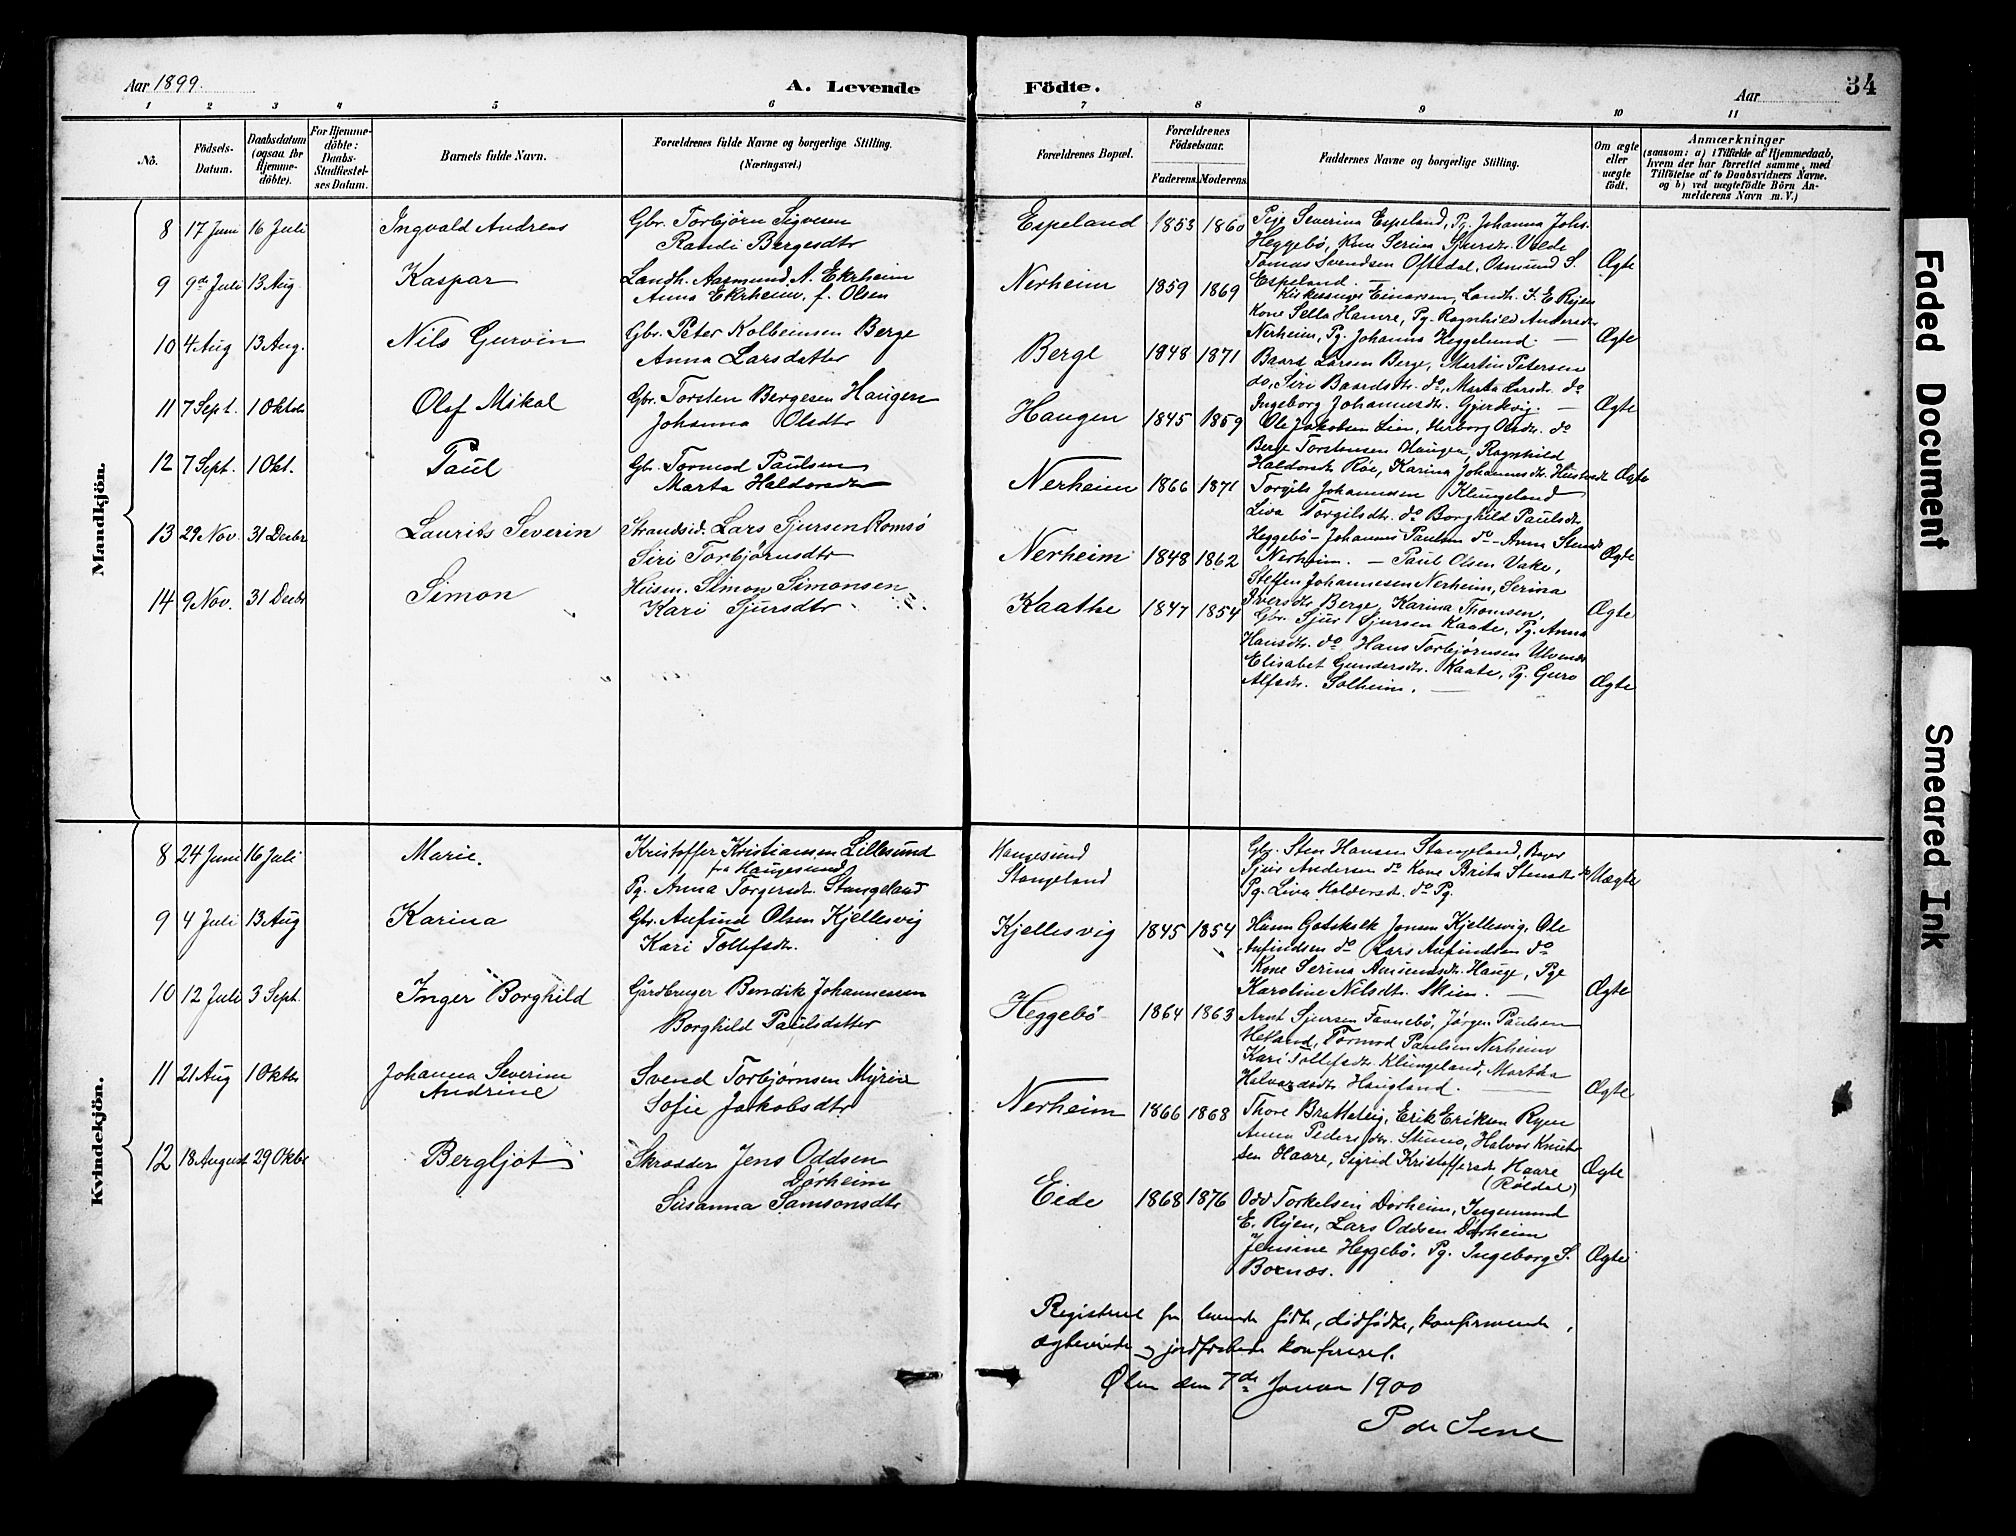 Aar 1899.
A. Levende
Födte.
Aar
34
1 2 3 4 5 6 7 8 9 10 11
No.
Födsels-Datum.
Daabsdatum (ogsaa for Hjemme-döbte).
For Hjemme-döbte: Daabs-Stadfæstel-ses Datum.
Barnets fulde Navn.
Forældrenes fulde Navne og borgerlige Stilling. (Næringsvei.)
Forældrenes Bopæl.
Forældrenes Födselsaar.
Faderens. Moderens.
Faddernes Navne og borgerlige Stilling.
Om ægte eller uægte födt.
Anmærkninger
(saasom: a) i Tilfælde af Hjemmedaab, hvem der har forrettet samme, med Tilföielse af to Daabsvidners Navne. og b) ved uægtefödte Börn An-melderens Navn m. V.)
Mandkjön.
8 17 Juni 16 Juli Ingvald Andreas Gbr. Torbjörn Sigvesen
Randi Bergesdtr
Espeland 1853 1860 Pige Severina Espeland, Pg. Johanna Johs.
Heggebö, Kone Serina Sjursdtr. Valde
Tomas Svendsen Oftedal, Osmund S.
Espeland. — Ægte
9 9de Juli 13 Aug Kaspar Landh. Aasmund A. Ekrheim
Anna Ekrheim, f. Olsen
Nerheim 1859 1869 Kirkesanger Einarsen, Landh. I. E. Rijen
Kone Sella Hamre, Pg. Ragnhild Andersdtr
Nerheim, Pg. Johanna Heggelund. — Ægte
10 4 Aug 13 Aug. Nils Gurvin Gbr. Peter Kolbeinsen Berge
Anna Larsdatter
Berge 1848 1871 Baard Larsen Berge, Martin Petersen
do, Siri Baardsdtr. do, Marta Larsdtr. do
Ingeborg Johannesdtr. Gjerdevig. — Ægte
11 7 Sept. 1 Oktbr Olaf Mikal Gbr. Torsten Bergesen Haugen
Johanna Olsdtr
Haugen 1845 1859 Ole Jakobsen Lien, Herborg Olsdtr. do
Berge Torstensen Haugen, Ragnhild
Haldorsdtr. Röe, Karina Johannesdtr. Hustvedt Ægte
12 7 Sept. 1 Okt. Paul Gbr. Tormod Paulsen
Marta Haldorsdtr
Nerheim 1866 1871 Torgils Johannesen Klungeland
Liva Torgilsdtr. do Borghild Paulsdtr.
Heggebö – Johannes Paulsen do – Anna
Nerheim. — Ægte
13 29 Nov. 31 Decbr Laurits Severin Strandsid. Lars Sjursen Romsö
Siri Torbjörnsdtr
Nerheim 1848 1862 Paul Olsen Vake,
Steffen Johannesen Nerheim, Serina
Iversdtr Berge, Karina Thomsen, Ægte
14 9 Nov. 31 Decbr Simon Husm. Simon Simonsen
Kari Sjursdtr
Kaathe 1847 1854 Gbr. Sjur Sjursen Kaate, Pg. Anna
Hansdtr. do Hans Torbjörnsen Ulvenes
Elisabet Gundersdtr. Kaate, Pg. Guro
Alfsdtr. Solheim. — Ægte
Kvindekjön.
8 24 Juni 16 Juli Marie. Kristoffer Kristiansen Lillesund
fra Haugesund
Pg. Anna Torgersdtr. Stangeland
Haugesund
Stangeland
Gbr. Sten Hansen Stangeland,
Sjur Andersen do Kone Brita Stensdtr do
Pg. Liva Haldorsdtr. do Pg. Uægte
9 4 Juli 13 Aug Karina Gbr. Anfind Olsen Kjellesvig
Kari Tollefsdtr.
Kjellesvig 1845 1854 Husm Godskalk Jonsen Kjellesvig, Ole
Anfindsen do Lars Anfindsen do
Kone Serina Amundsdtr. Hauge, Pge
Karoline Nilsdtr. Skien. — Ægte
10 12 Juli 3 Sept. Inger Borghild Gårdbruger Bendik Johannesen
Borghild Paulsdatter
Heggebö 1864 1863 Arnt Sjursen Favnebö, Jörgen Paulsen
Hetland, Tormod Paulsen Nerheim
Kari Tollefsdtr. Klungeland, Martha
Halvorsdtr. Haugland. — Ægte
11 21 Aug 1 Oktbr Johanna Severine
Andrine
Svend Torbjørnsen Myrene
Sofie Jakobsdtr
Nerheim 1866 1868 Thore Bratteteig, Erik Eriksen Ryen
Anna Pedersdtr. Stumo, Halvor Knut-
sen Haare, Sigrid Kristoffersdtr Haare
(Røldal) Ægte
12 18 August 29 Oktbr Bergljot Skrædder Jens Oddsen
Dörheim
Susanna Samsonsdtr
Eide 1868 1876 Odd Torkelsen Dörheim, Ingemund
E. Rijen, Lars Oddsen Dörheim
Jensine Heggebö. Pg. Ingeborg S.
Börnæs. Ægte
Registeret for levende fødte, dødfødte, konfirmerede,
ægteviede og jordfæstede konfereret.
Ølen den 7de Januar 1900
P de Seue
Faded Document
Smeared Ink